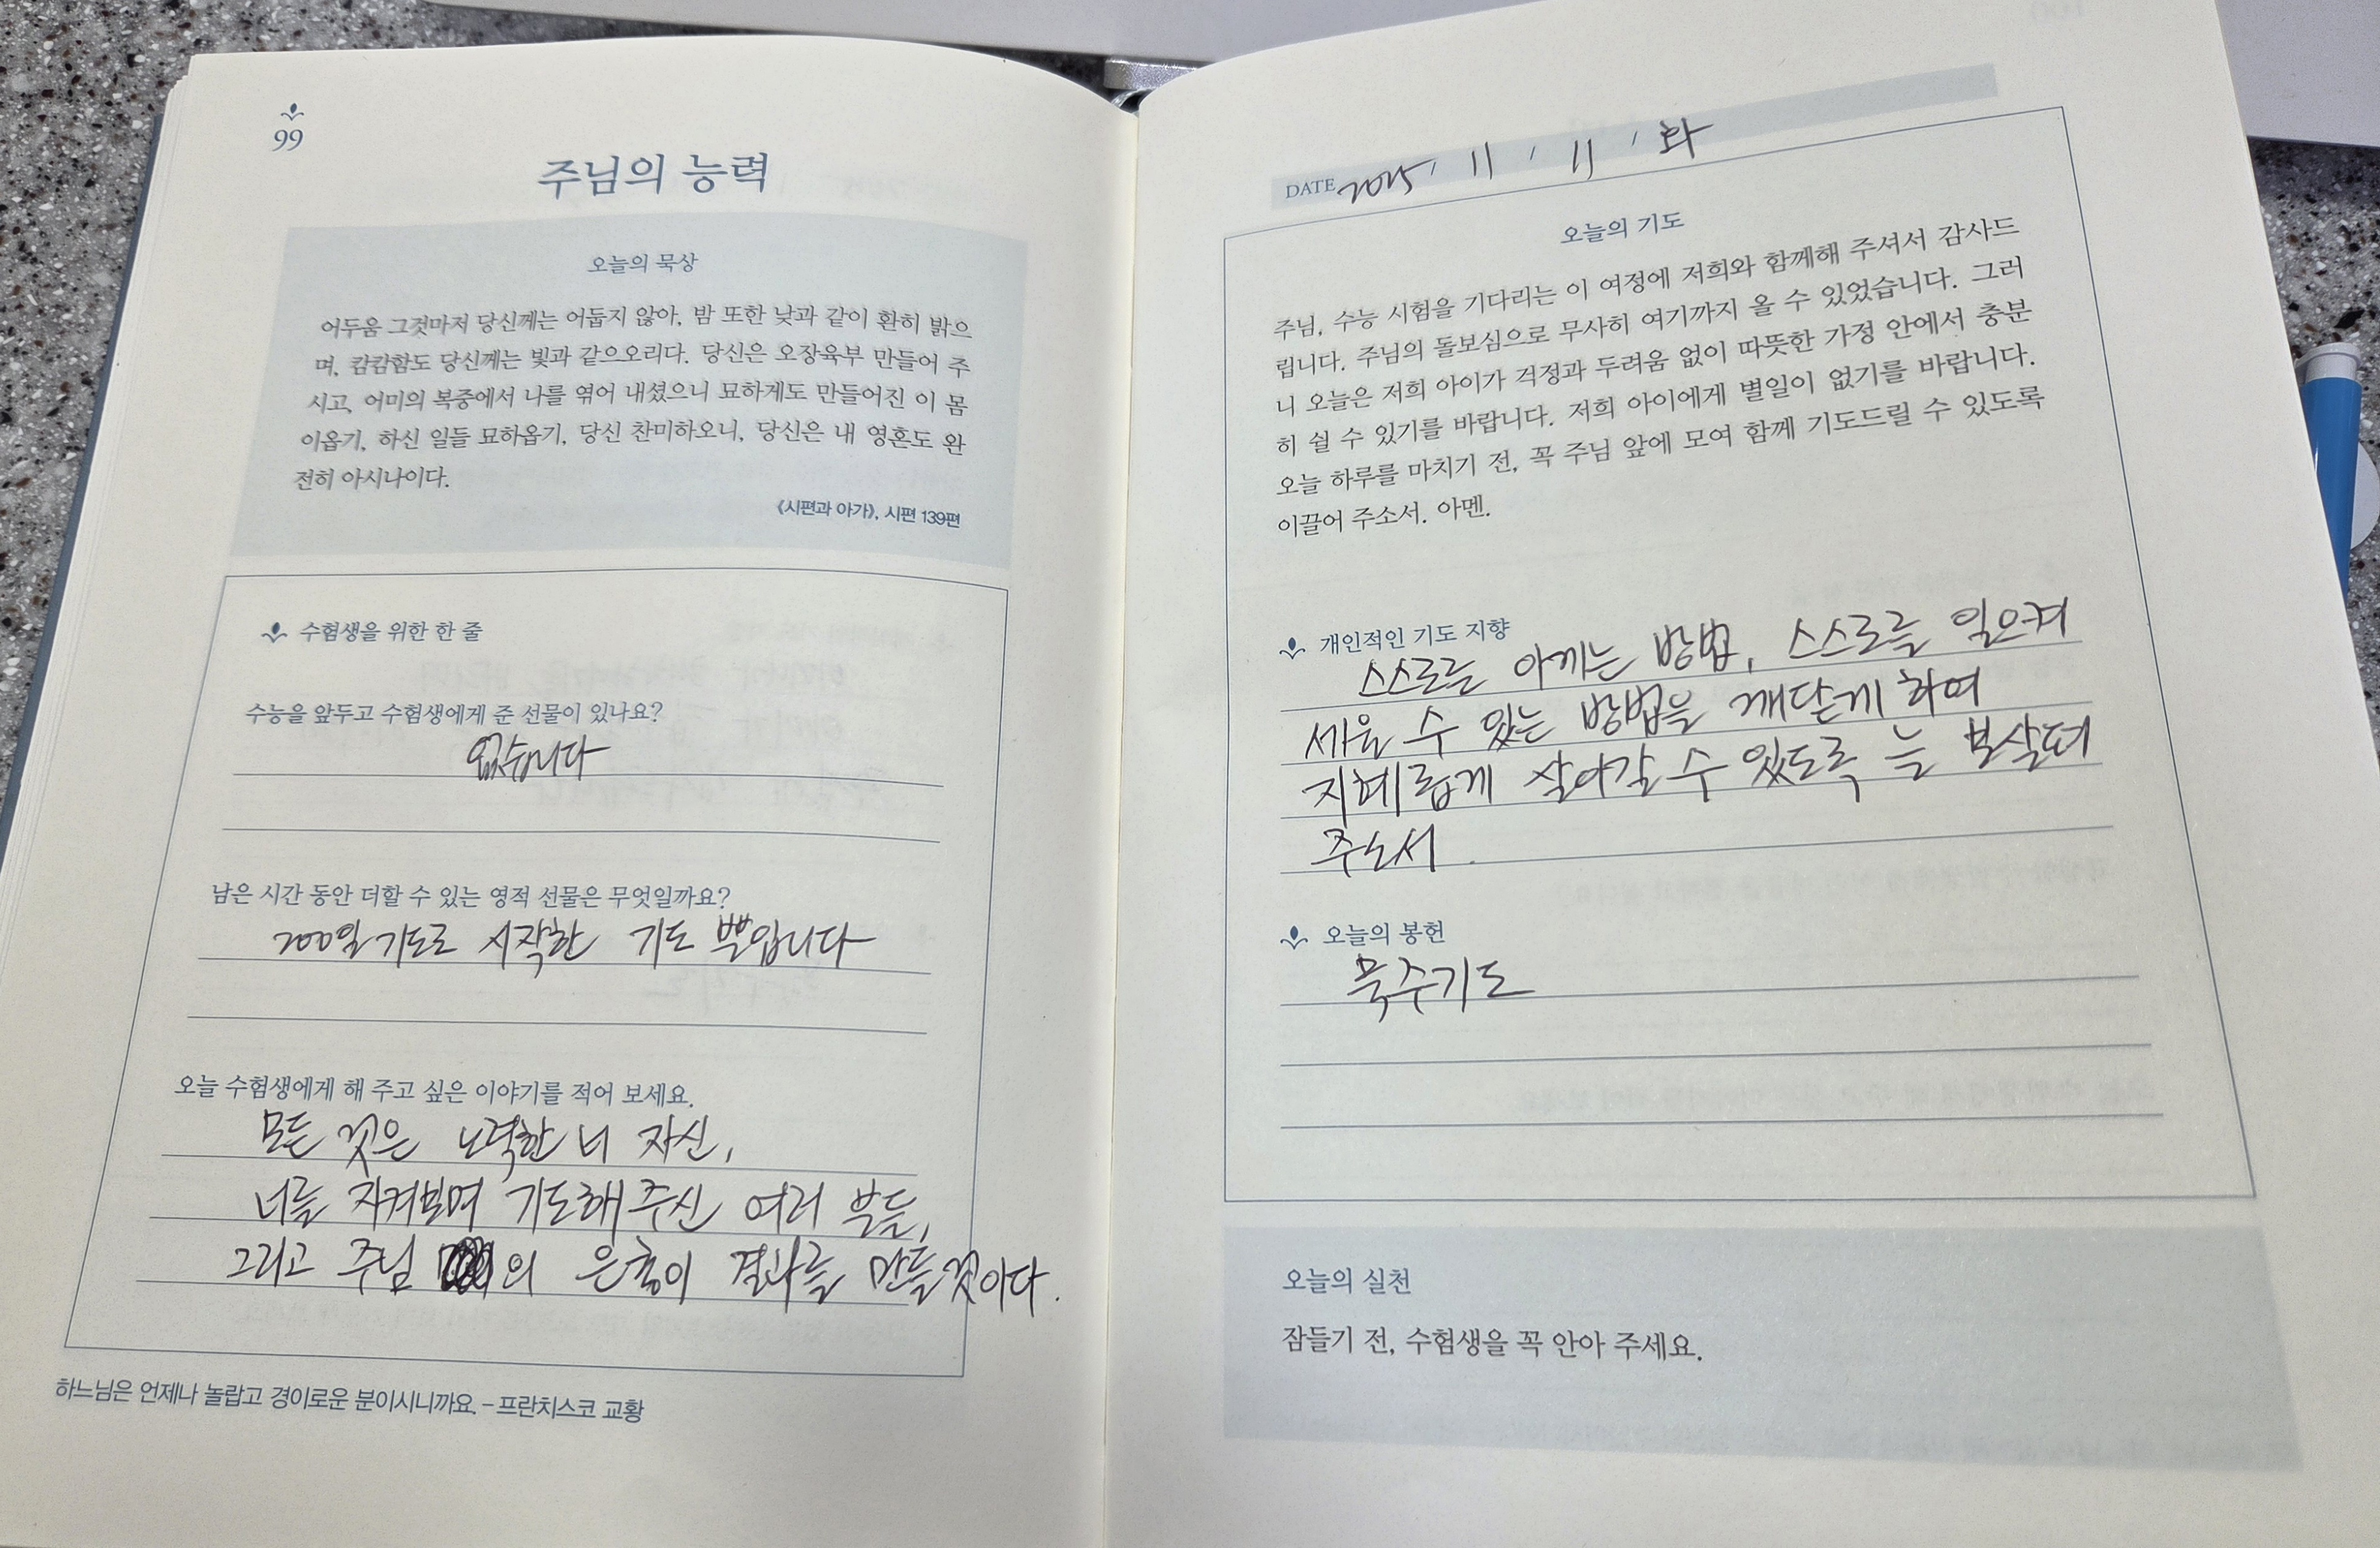 99
주님의 능력
오늘의 묵상
어두움 그것마저 당신께는 어둡지 않아, 밤 또한 낮과 같이 환히 밝으
며, 캄캄함도 당신께는 빛과 같으오리다. 당신은 오장육부 만들어 주
시고, 어미의 복중에서 나를 엮어 내셨으니 묘하게도 만들어진 이 몸
이옵기, 하신 일들 묘하옵기, 당신 찬미하오니, 당신은 내 영혼도 완
전히 아시나이다.
《시편과 아가》, 시편 139편
수험생을 위한 한 줄
수능을 앞두고 수험생에게 준 선물이 있나요?
없습니다
남은 시간 동안 더할 수 있는 영적 선물은 무엇일까요?
200일 기도로 시작한 기도 뿐입니다
오늘 수험생에게 해 주고 싶은 이야기를 적어 보세요.
모든 것은 노력한 너 자신,
너를 지켜보며 기도해 주신 여러 분들,
그리고 주님 의 은총이 결과를 만들것이다.
하느님은 언제나 놀랍고 경이로운 분이시니까요. – 프란치스코 교황
DATE 2025 / 11 / 11 / 화
오늘의 기도
주님, 수능 시험을 기다리는 이 여정에 저희와 함께해 주셔서 감사드
립니다. 주님의 돌보심으로 무사히 여기까지 올 수 있었습니다. 그러
니 오늘은 저희 아이가 걱정과 두려움 없이 따뜻한 가정 안에서 충분
히 쉴 수 있기를 바랍니다. 저희 아이에게 별일이 없기를 바랍니다.
오늘 하루를 마치기 전, 꼭 주님 앞에 모여 함께 기도드릴 수 있도록
이끌어 주소서. 아멘.
개인적인 기도 지향
스스로를 아끼는 방법, 스스로를 일으켜
세울 수 있는 방법을 깨닫게 하여
지혜롭게 살아갈 수 있도록 늘 보살펴
주소서.
오늘의 봉헌
묵주기도
오늘의 실천
잠들기 전, 수험생을 꼭 안아 주세요.